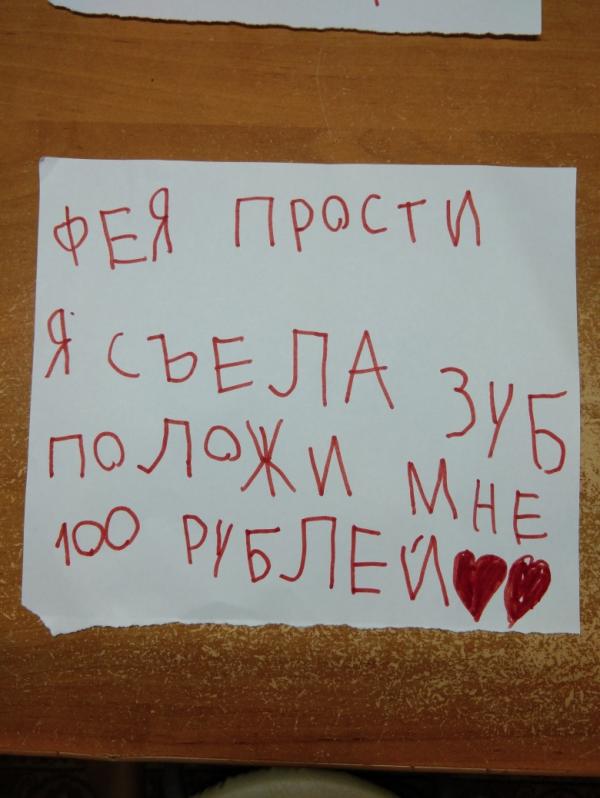 ФЕЯ ПРОСТИ
Я СЪЕЛА ЗУБ
ПОЛОЖИ МНЕ
100 РУБЛЕЙ